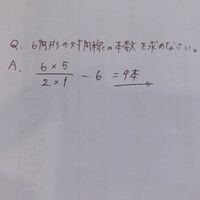 Q. 6角形の対角線の本数を求めなさい。
A. 6×5/2×1 − 6 = 9本